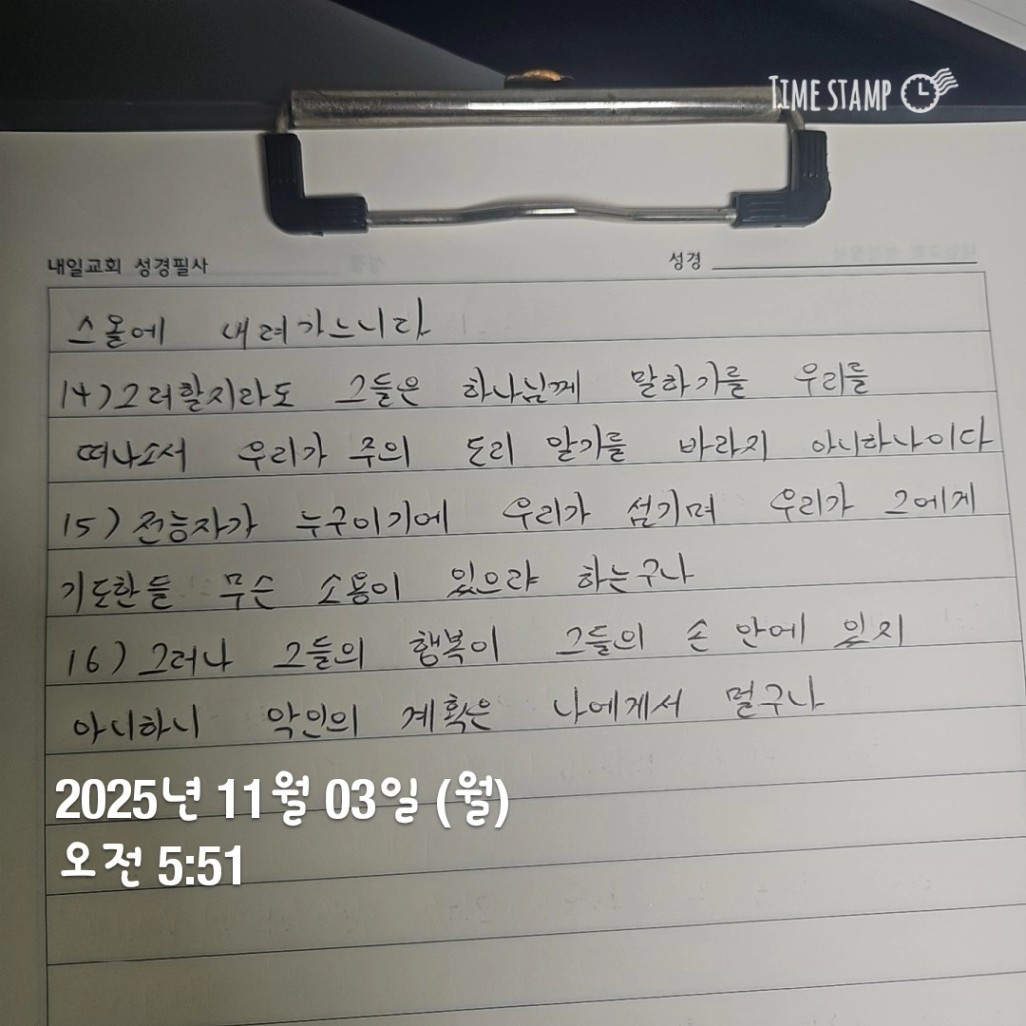 TIME STAMP
내일교회 성경필사 성경
스올에 내려가느니라
14) 그러할지라도 그들은 하나님께 말하기를 우리를
떠나소서 우리가 주의 도리 알기를 바라지 아니하나이다
15) 전능자가 누구이기에 우리가 섬기며 우리가 그에게
기도한들 무슨 소용이 있으랴 하는구나
16) 그러나 그들의 행복이 그들의 손 안에 있지
아니하니 악인의 계획은 나에게서 멀구나
2025년 11월 03일 (월)
오전 5:51